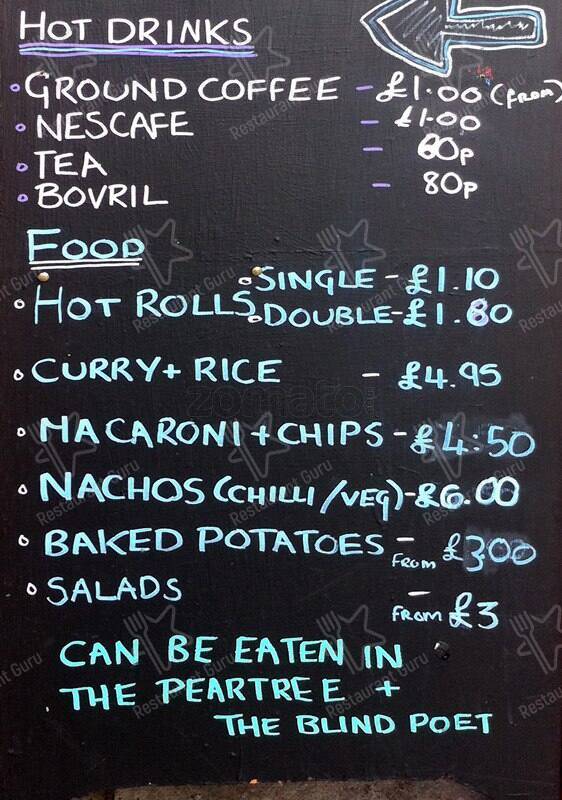 HOT DRINKS
GROUND COFFEE - £1.00 (FROM)
NESCAFE - £1.00
TEA - 60p
BOVRIL - 80p
FOOD
HOT ROLLS
SINGLE - £1.10
DOUBLE - £1.80
CURRY + RICE - £4.95
MACARONI + CHIPS - £4:50
NACHOS (CHILLI/VEG) - £6.00
BAKED POTATOES - FROM £3.00
SALADS - FROM £3
CAN BE EATEN IN
THE PEARTREE +
THE BLIND POET
zomato
Restaurant Guru